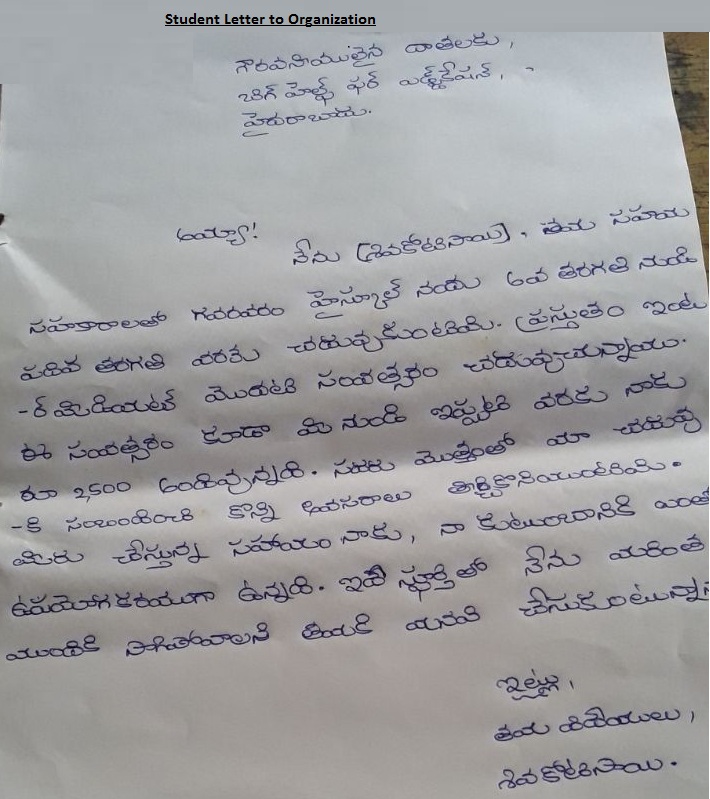 Student Letter to Organization
గౌరవనీయులైన దాతలకు,
బిగ్ హెల్ప్ ఫర్ ఎడ్యుకేషన్,
హైదరాబాదు.
అయ్యా!
నేను (శివకోటిసాయి), తమ సహయ
సహకారాలతో గవరవరం హైస్కూల్ నందు 6వ తరగతి నుండి
పదివ తరగతి వరకు చదువుకుంటిని. ప్రస్తుతం ఇంట
-ర్ మీడియట్ మొదటి సంవత్సరం చదువుచున్నాను.
ఈ సంవత్సరం కూడా మీ నుండి ఇప్పటి వరకు నాకు
రూ 2,500 అందివున్నది. సదరు మొత్తంతో మా చదువు
-కి సంబంధించి కొన్ని అవసరాలు తీర్చికొనియుంటిని.
మీరు చేస్తున్న సహాయం నాకు, నా కుటుంబానికి ఎంతో
ఉపయోగకరముగా ఉన్నది. ఇదే స్ఫూర్తితో నేను మరింత
ముందుకి సాగిపోవాలని మనవి చేసుకుంటున్నాను
ఇట్లు,
తమ విధేయులు,
శివకోటిసాయి.